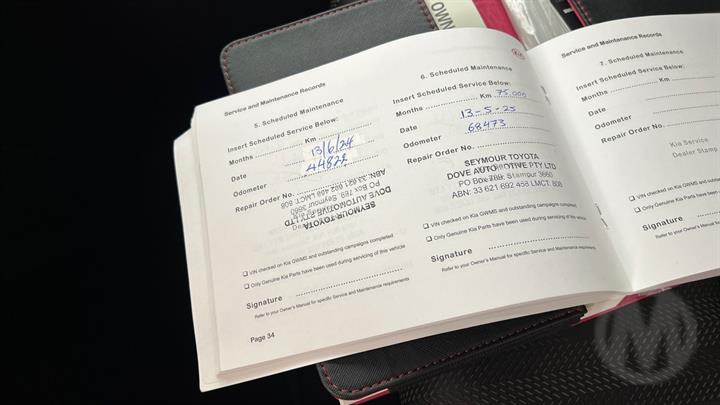 OWN
Service and Maintenance Records
5. Scheduled Maintenance
Insert Scheduled Service Below:
Months .......... Km ..........
Date 13/6/24
Odometer
Repair Order No. ..........
SEYMOUR TOYOTA
DOVE AUTOMOTIVE PTY LTD
PO Box 769 Seymour 3660
ABN: 33 621 692 458 LMCT: 808
VIN checked on Kia GWMS and outstanding campaigns completed
Only Genuine Kia Parts have been used during servicing of this vehicle
Signature ..........
Refer to your Owner's Manual for specific Service and Maintenance requirements
Page 34
KIA
6. Scheduled Maintenance
Insert Scheduled Service Below:
Months .......... Km 75,000
Date 13-5-25
Odometer 68473
Repair Order No.
SEYMOUR TOYOTA
DOVE AUTOMOTIVE PTY LTD
PO Box 769 3660
ABN: 33 621 692 458 LMCT: 808
VIN checked on Kia GWMS and outstanding campaigns completed
Only Genuine Kia Parts have been used during servicing of this vehicle
Signature ..........
Refer to your Owner's Manual for specific Service and Maintenance requirements
Service and Maintenance Records
7. Scheduled Maintenance
Insert Scheduled Service Below:
Months .......... Km
Date
Odometer
Repair Order No.
Kia Service
Dealer Stamp
VIN checked on Kia GWMS and
Only Genuine Kia Parts have
Signature
Refer to your Owner's Manual for
M